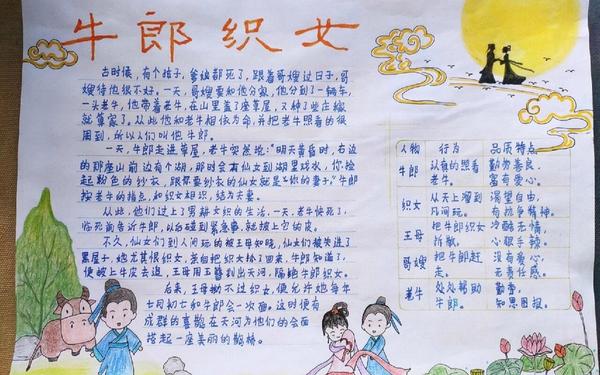 牛郎织女
古时候,有个孩子,爹娘都死了,跟着哥嫂过日子,哥
嫂待他很不好。一天,哥嫂要和他分家,他分到了一辆车,
一头老牛,他带着老牛,在山里盖了座草屋,又种了些庄稼
就算家了。从此他和老牛相依为命,并把老牛照看的很
周到,所以人们叫他牛郎。
一天,牛郎走进草屋,老牛突然说:“明天黄昏时,右边
的那座山前边有个湖,那时会有仙女到湖里戏水,你捡
起粉色的纱衣,跟你要纱衣的仙女就是你的妻子。”牛郎
按老牛的指色,和织女相识,结为夫妻。
从此,他们过上了男耕女织的生活,一天,老牛快死了,
临死前告诉牛郎,以后碰到紧急事,就披上它的皮。
不久,仙女们到人间玩的被王母知晓,仙女们被关进了
黑屋子,她尤其恨织女,亲自把织女抓了回来,牛郎知道了,
便披上牛皮去追,王母用玉簪划出天河,隔绝牛郎织女。
后来,王母拗不过织女,便允许她每年
七月初七和牛郎会一次面。这时便有
成群的喜鹊在天河为他们的会面
搭起一座美丽的鹊桥。
人物 行为 品质特点
牛郎 认真的照看老牛。 勤劳善良,富有爱心。
织女 从天上溜到凡间玩。 渴望自由,有抗争精神。
王母 把牛郎织女拆散。 冷酷无情,心狠手辣。
哥嫂 把牛郎赶走。 没有爱心,无责任感。
老牛 处处帮助牛郎。 勤劳,知恩图报。